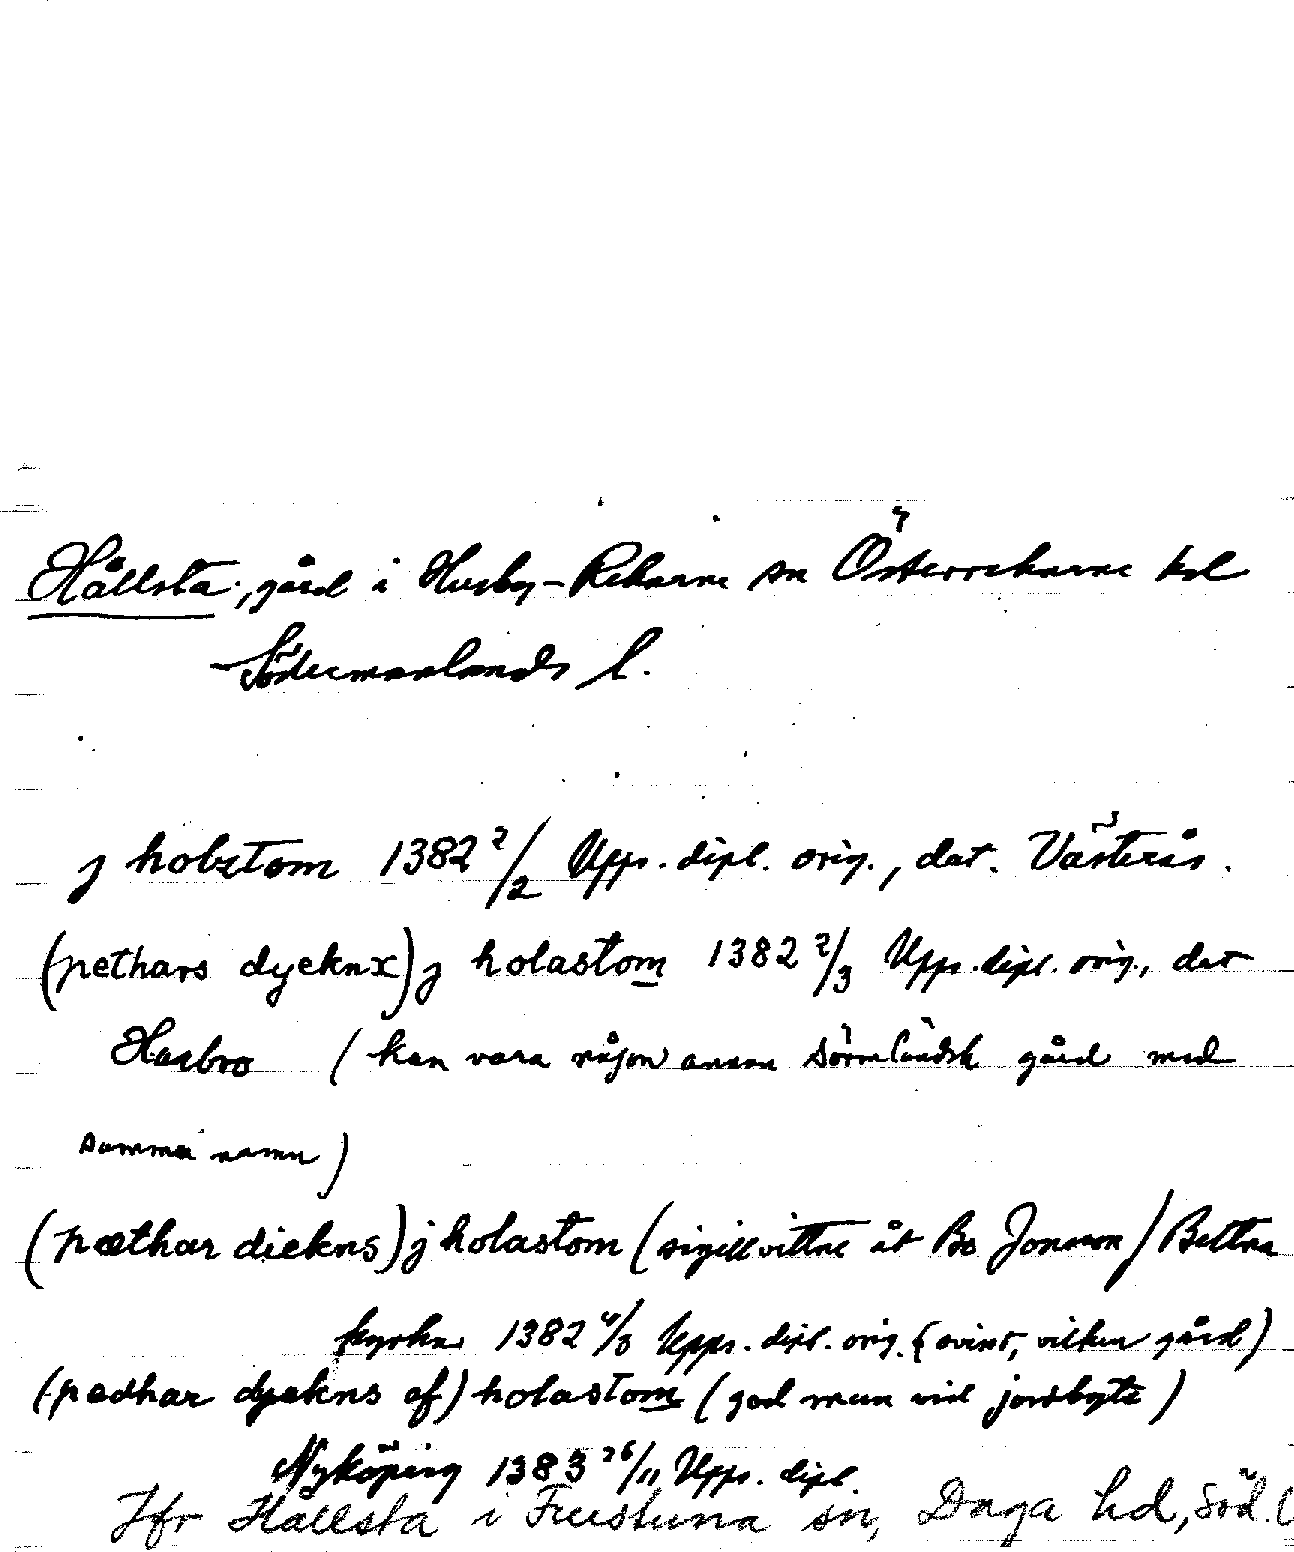 Hållsta, gård i Husby-Rekarne sn Österrekarne hd
Södermanlands l.
j holztom 1382 2/2 Upps. dipl. orig., dat. Västerås.
(pethars dyeknx) j holastom 1382 2/3 Upps. dipl. orig., dat
(kan vara någon annan sörmländsk gård med
samma namn)
(pæthar diekns) j holastom (sigillvittne åt Bo Jonsson / Bettna
kyrka 1382 4/3 Upps. dipl. orig. (ovisst, vilken gård)
(pædhar dyekns af) holastom (god man vid jordbyte)
Nyköping 1383 26/11 Upps. dipl.
Jfr Hållsta i Frustuna sn, Daga hd, Söd. l